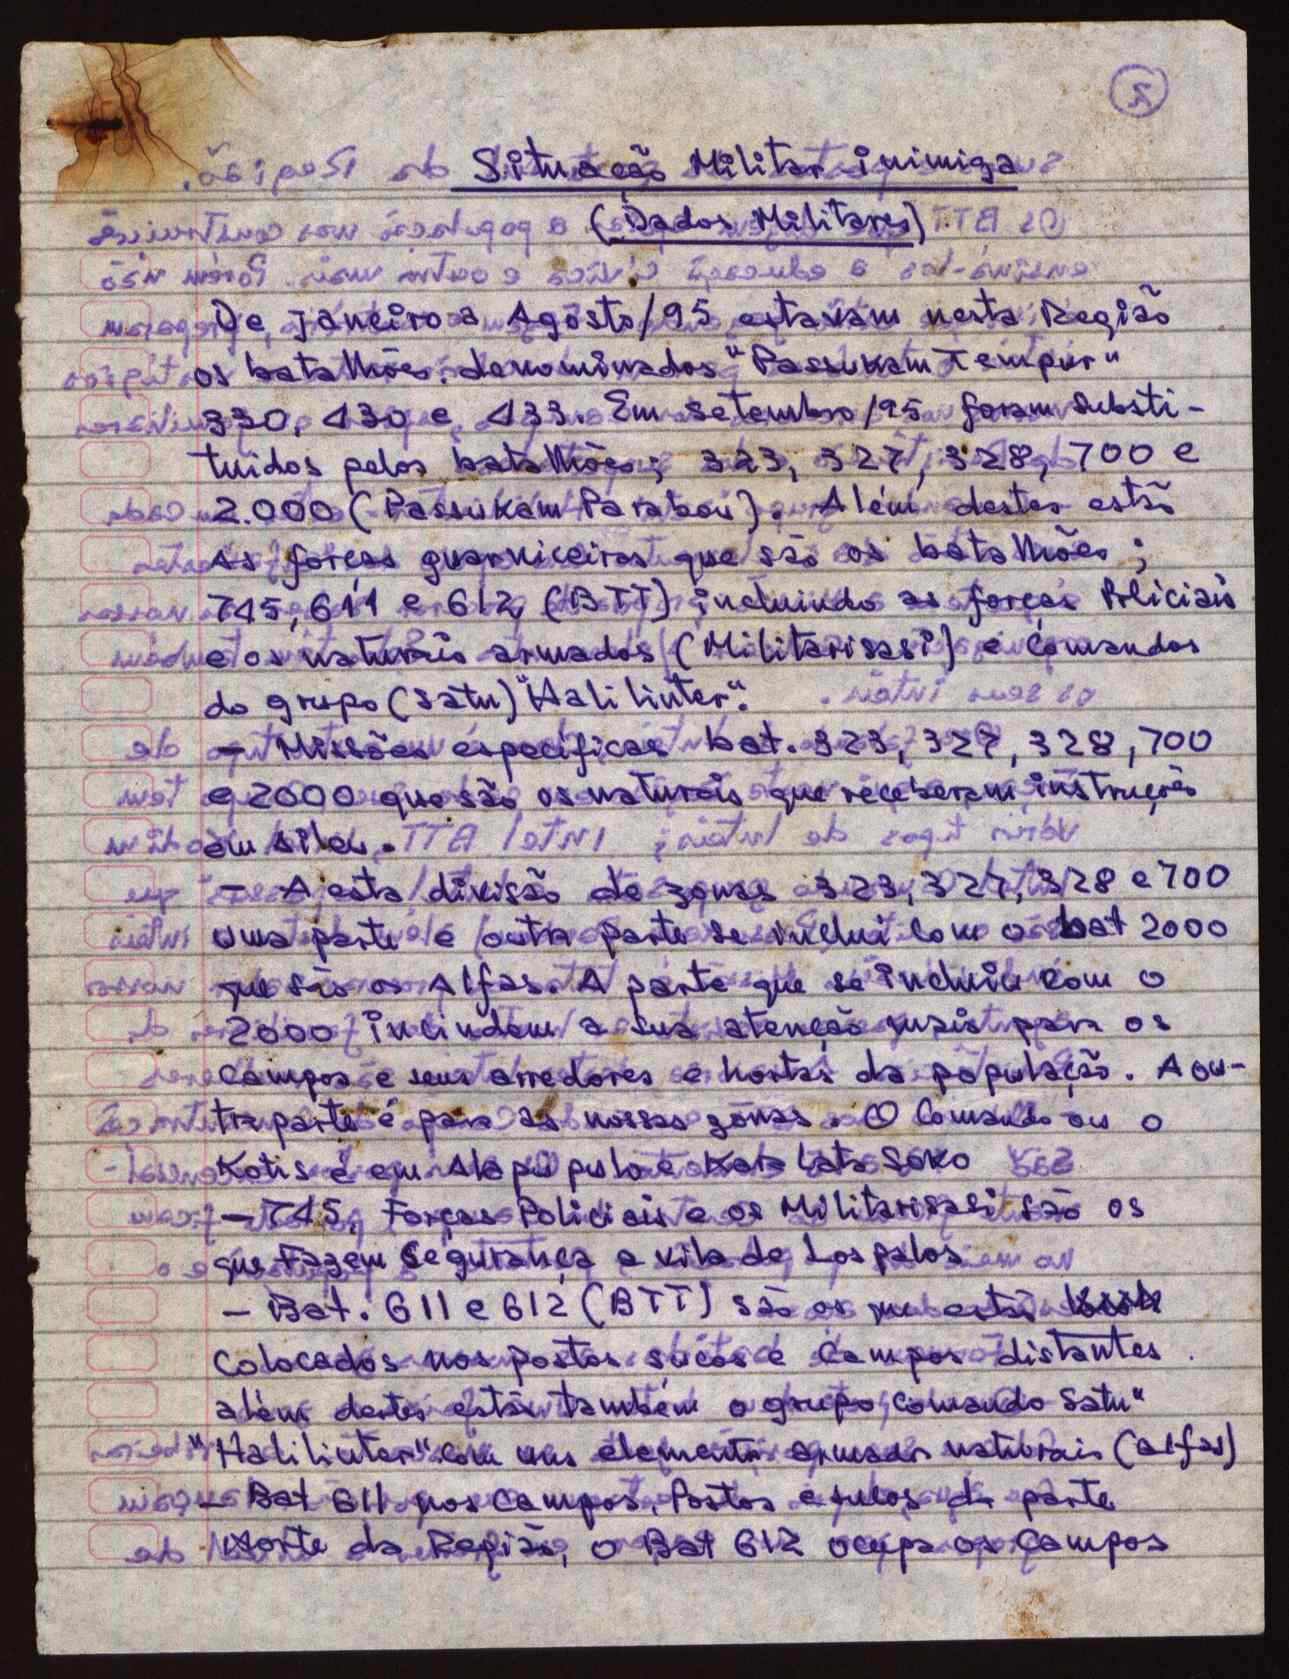 2
Situação Militar inimiga
(Dados Militares)
De janeiro a Agosto/95 estavam nesta Região
os batalhões denominados "Passukam Tempur"
330, 430 e 433. Em setembro/95 foram substi-
tuidos pelos batalhões; 323, 327, 328, 700 e
2.000 (Passukam Parabou). Além destes estão
as forças guarniceiras que são os batalhões;
745, 611 e 612, (BTT) incluindo as forças Policiais
e os naturais armados (Militarisasi) e comandos
do grupo (satu) "Halilinter".
- Missões especificas bat. 323, 327, 328, 700
e 2000 que são os naturais que receberam instruções
em
- A esta divisão de zonas 323, 327, 328 e 700
uma parte e outra parte se inclui com o bat 2000
que são os Alfas. A parte que se incluiu com o
2000 incindem a sua atenção mais para os
campos e seus arredores e hortas da população. A ou-
tra parte é para as nossas zonas. O Comando ou o
Kotis é em
- 745, Forças Policiais e os Militarisasi são os
que Fazem Segurança a vila de Lospalos
- Bat. 611 e 612 (BTT) são os que estão
colocados nos postos sucos e Campos distantes.
além destes estão também o grupo comando Satu"
"Halilinter" com uns elementos armados naturais (alfas)
- Bat 611 nos campos, Postos e sulos da parte
Norte da Região, o Bat 612 ocupa os Campos